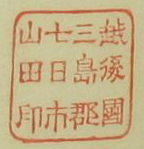 越後國
三島郡
七日市
山田印